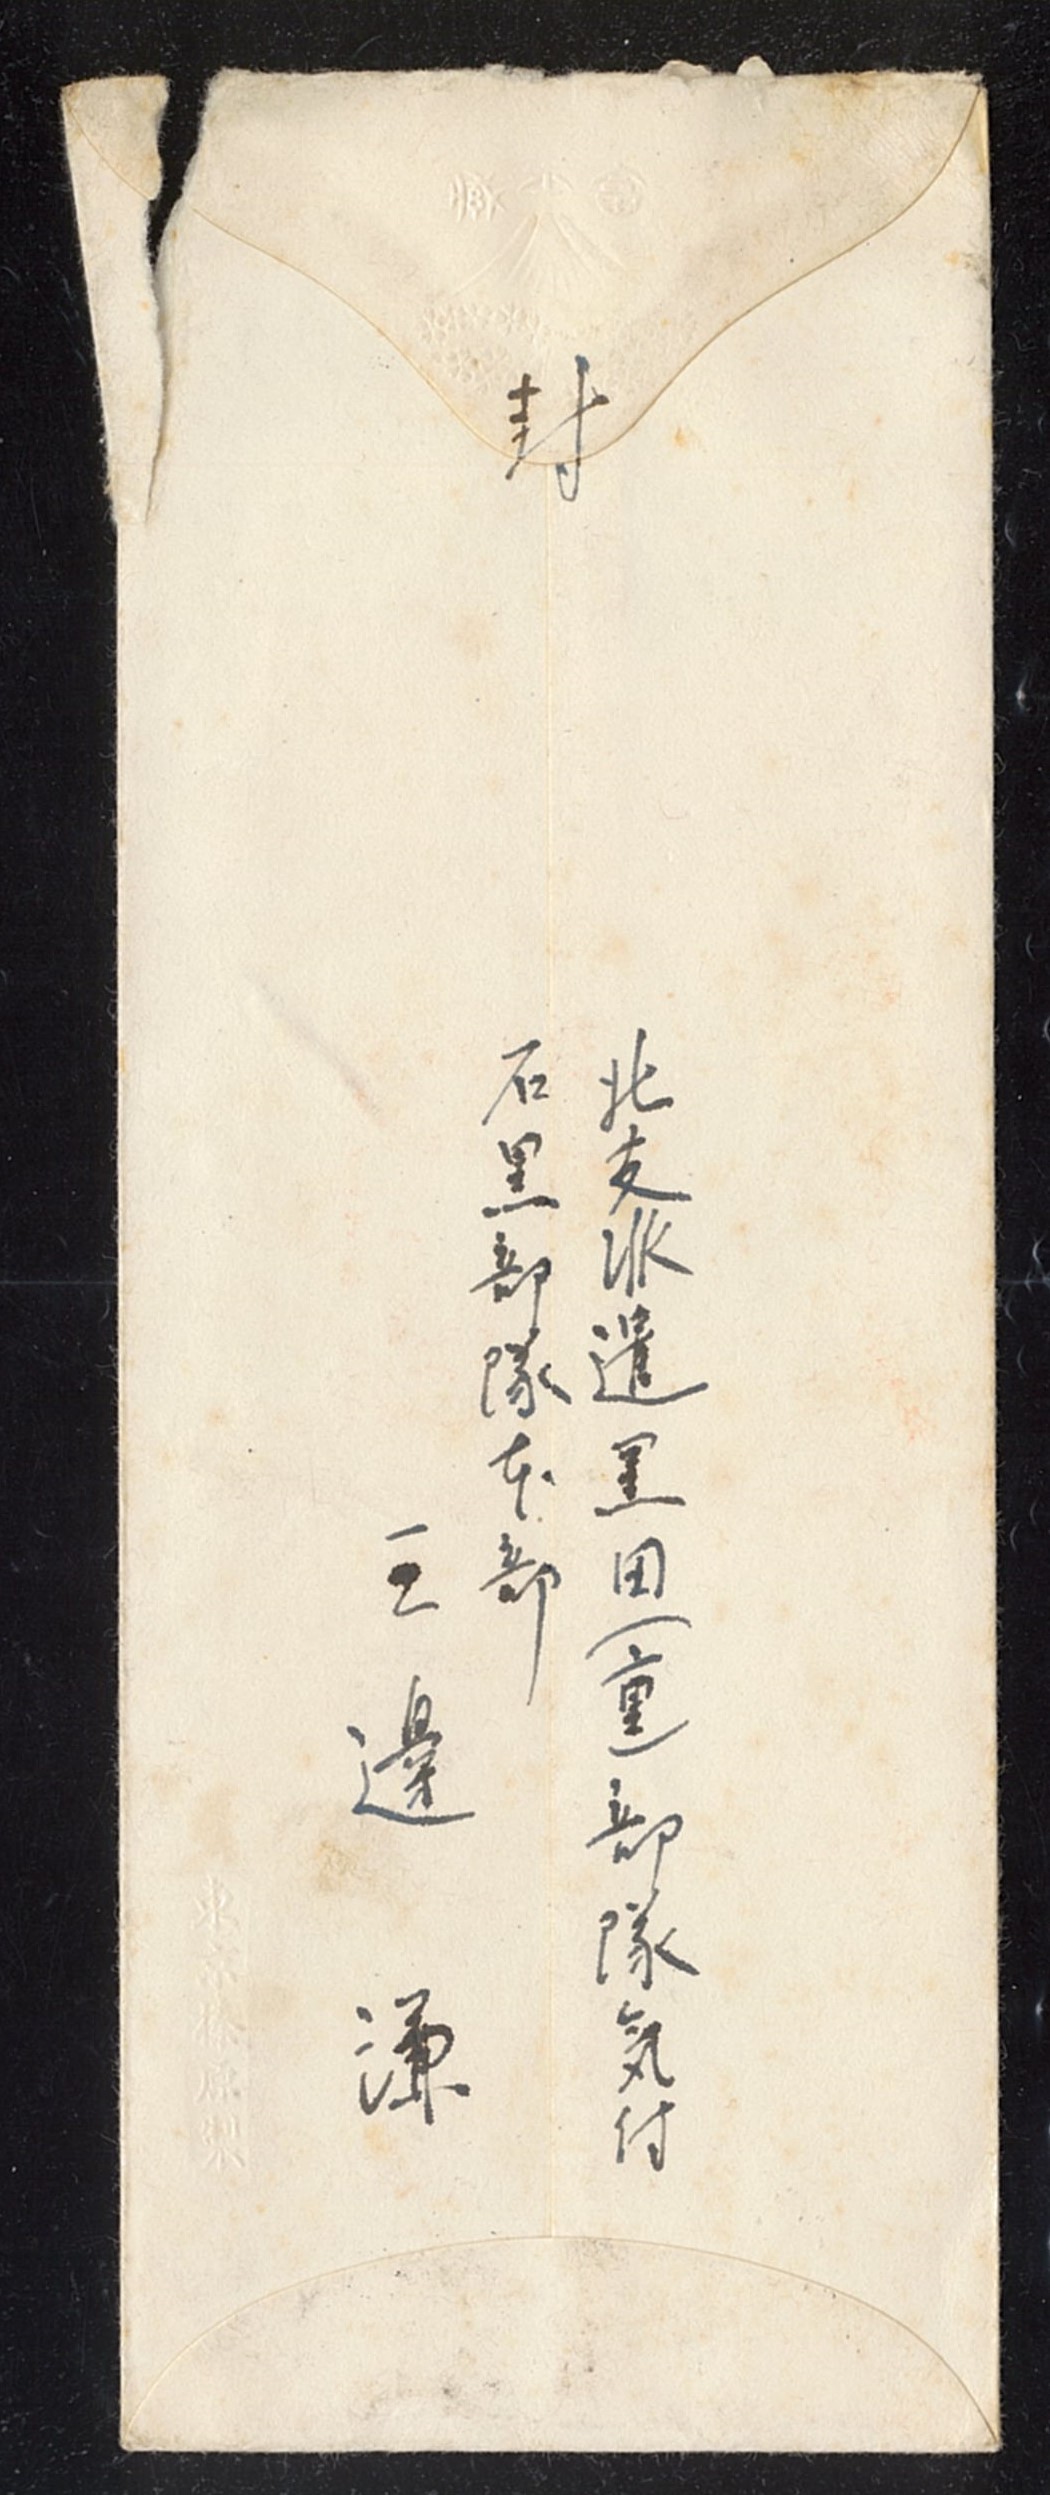 封
北支派遣黒田(重)部隊気付
石黒部隊本部
邊 謙
東京榛原製